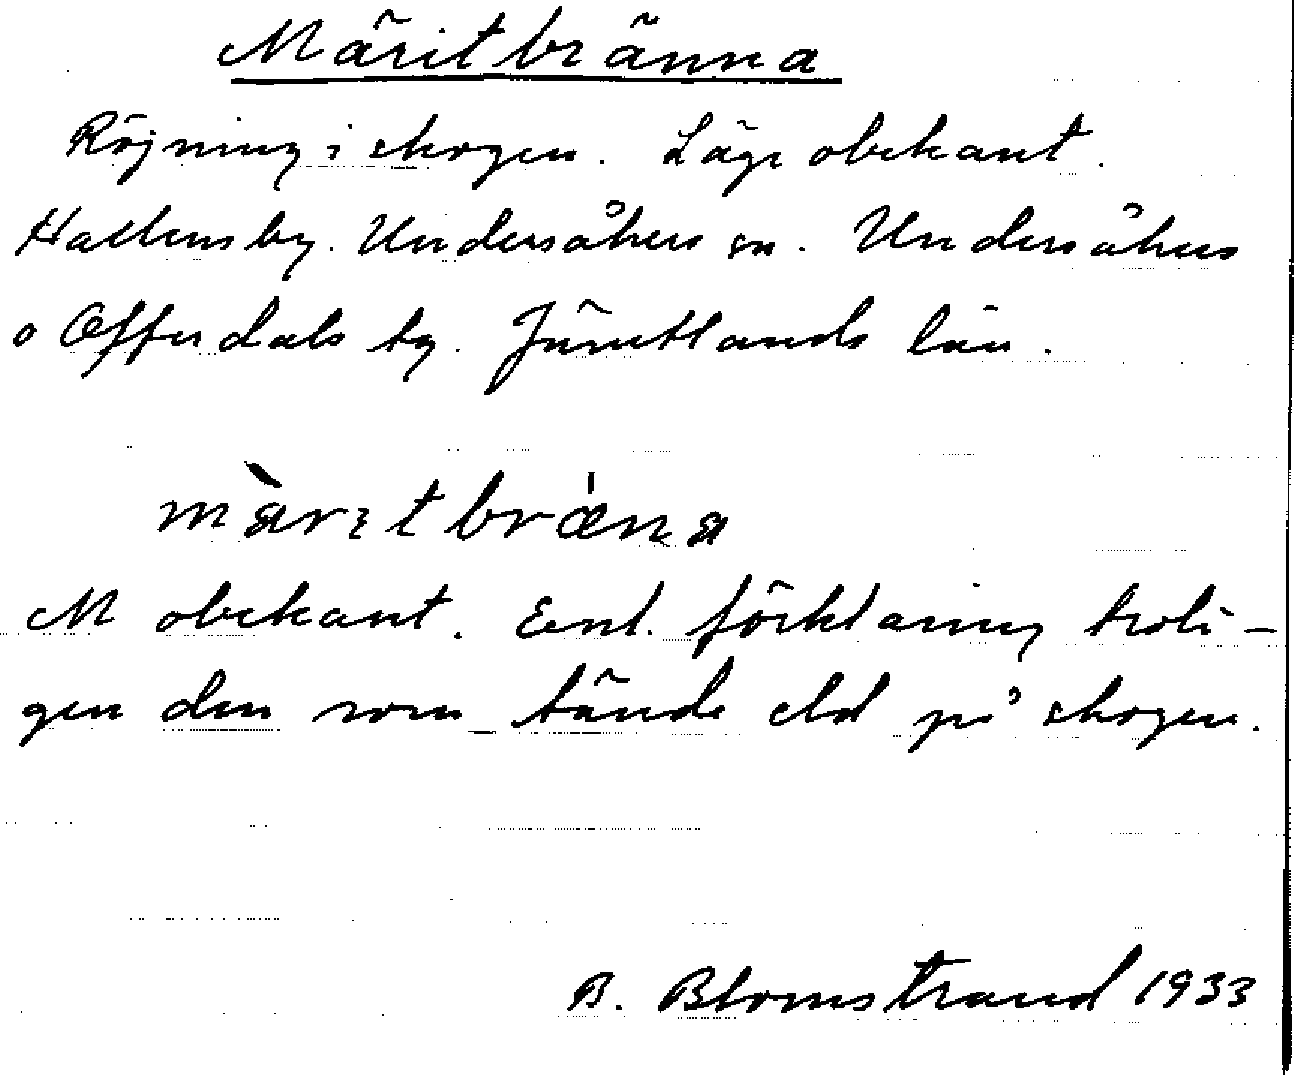 Märitbränna
Röjning i skogen. Läge obekant.
Hallens by. Undersåkers sn. Undersåkers
o Offerdals tg. Jämtlands län.
màrıtbræ̍na
M obekant. Enl. förklaring troli-
gen den som tände eld på skogen.
B. Blomstrand 1933